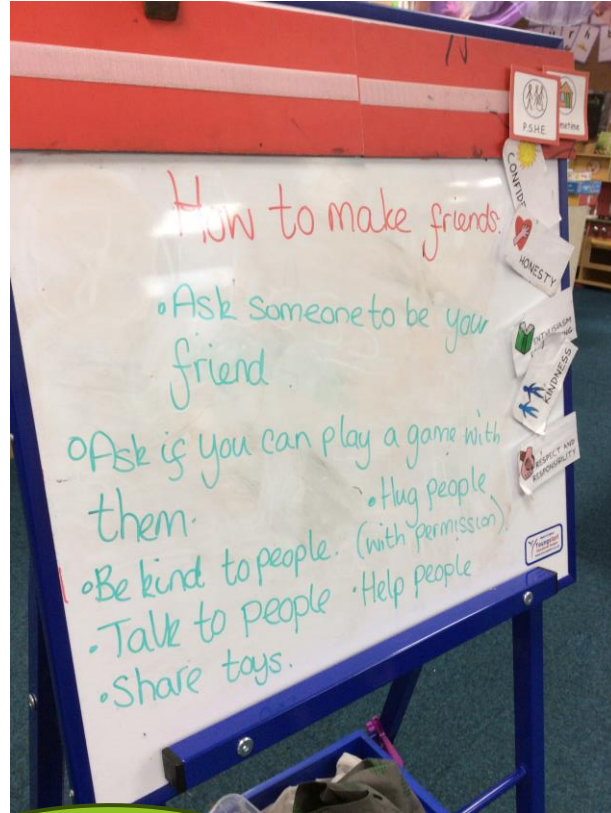 P.S.H.E.
CONFIDE
HONESTY
KINDNESS
RESPECT AND
RESPONSIBILITY
How to make friends.
•Ask someone to be your
friend.
•Ask if you can play a game with
them.
•Hug people
(with permission).
•Be kind to people.
•Talk to people
•Help people
•Share toys.